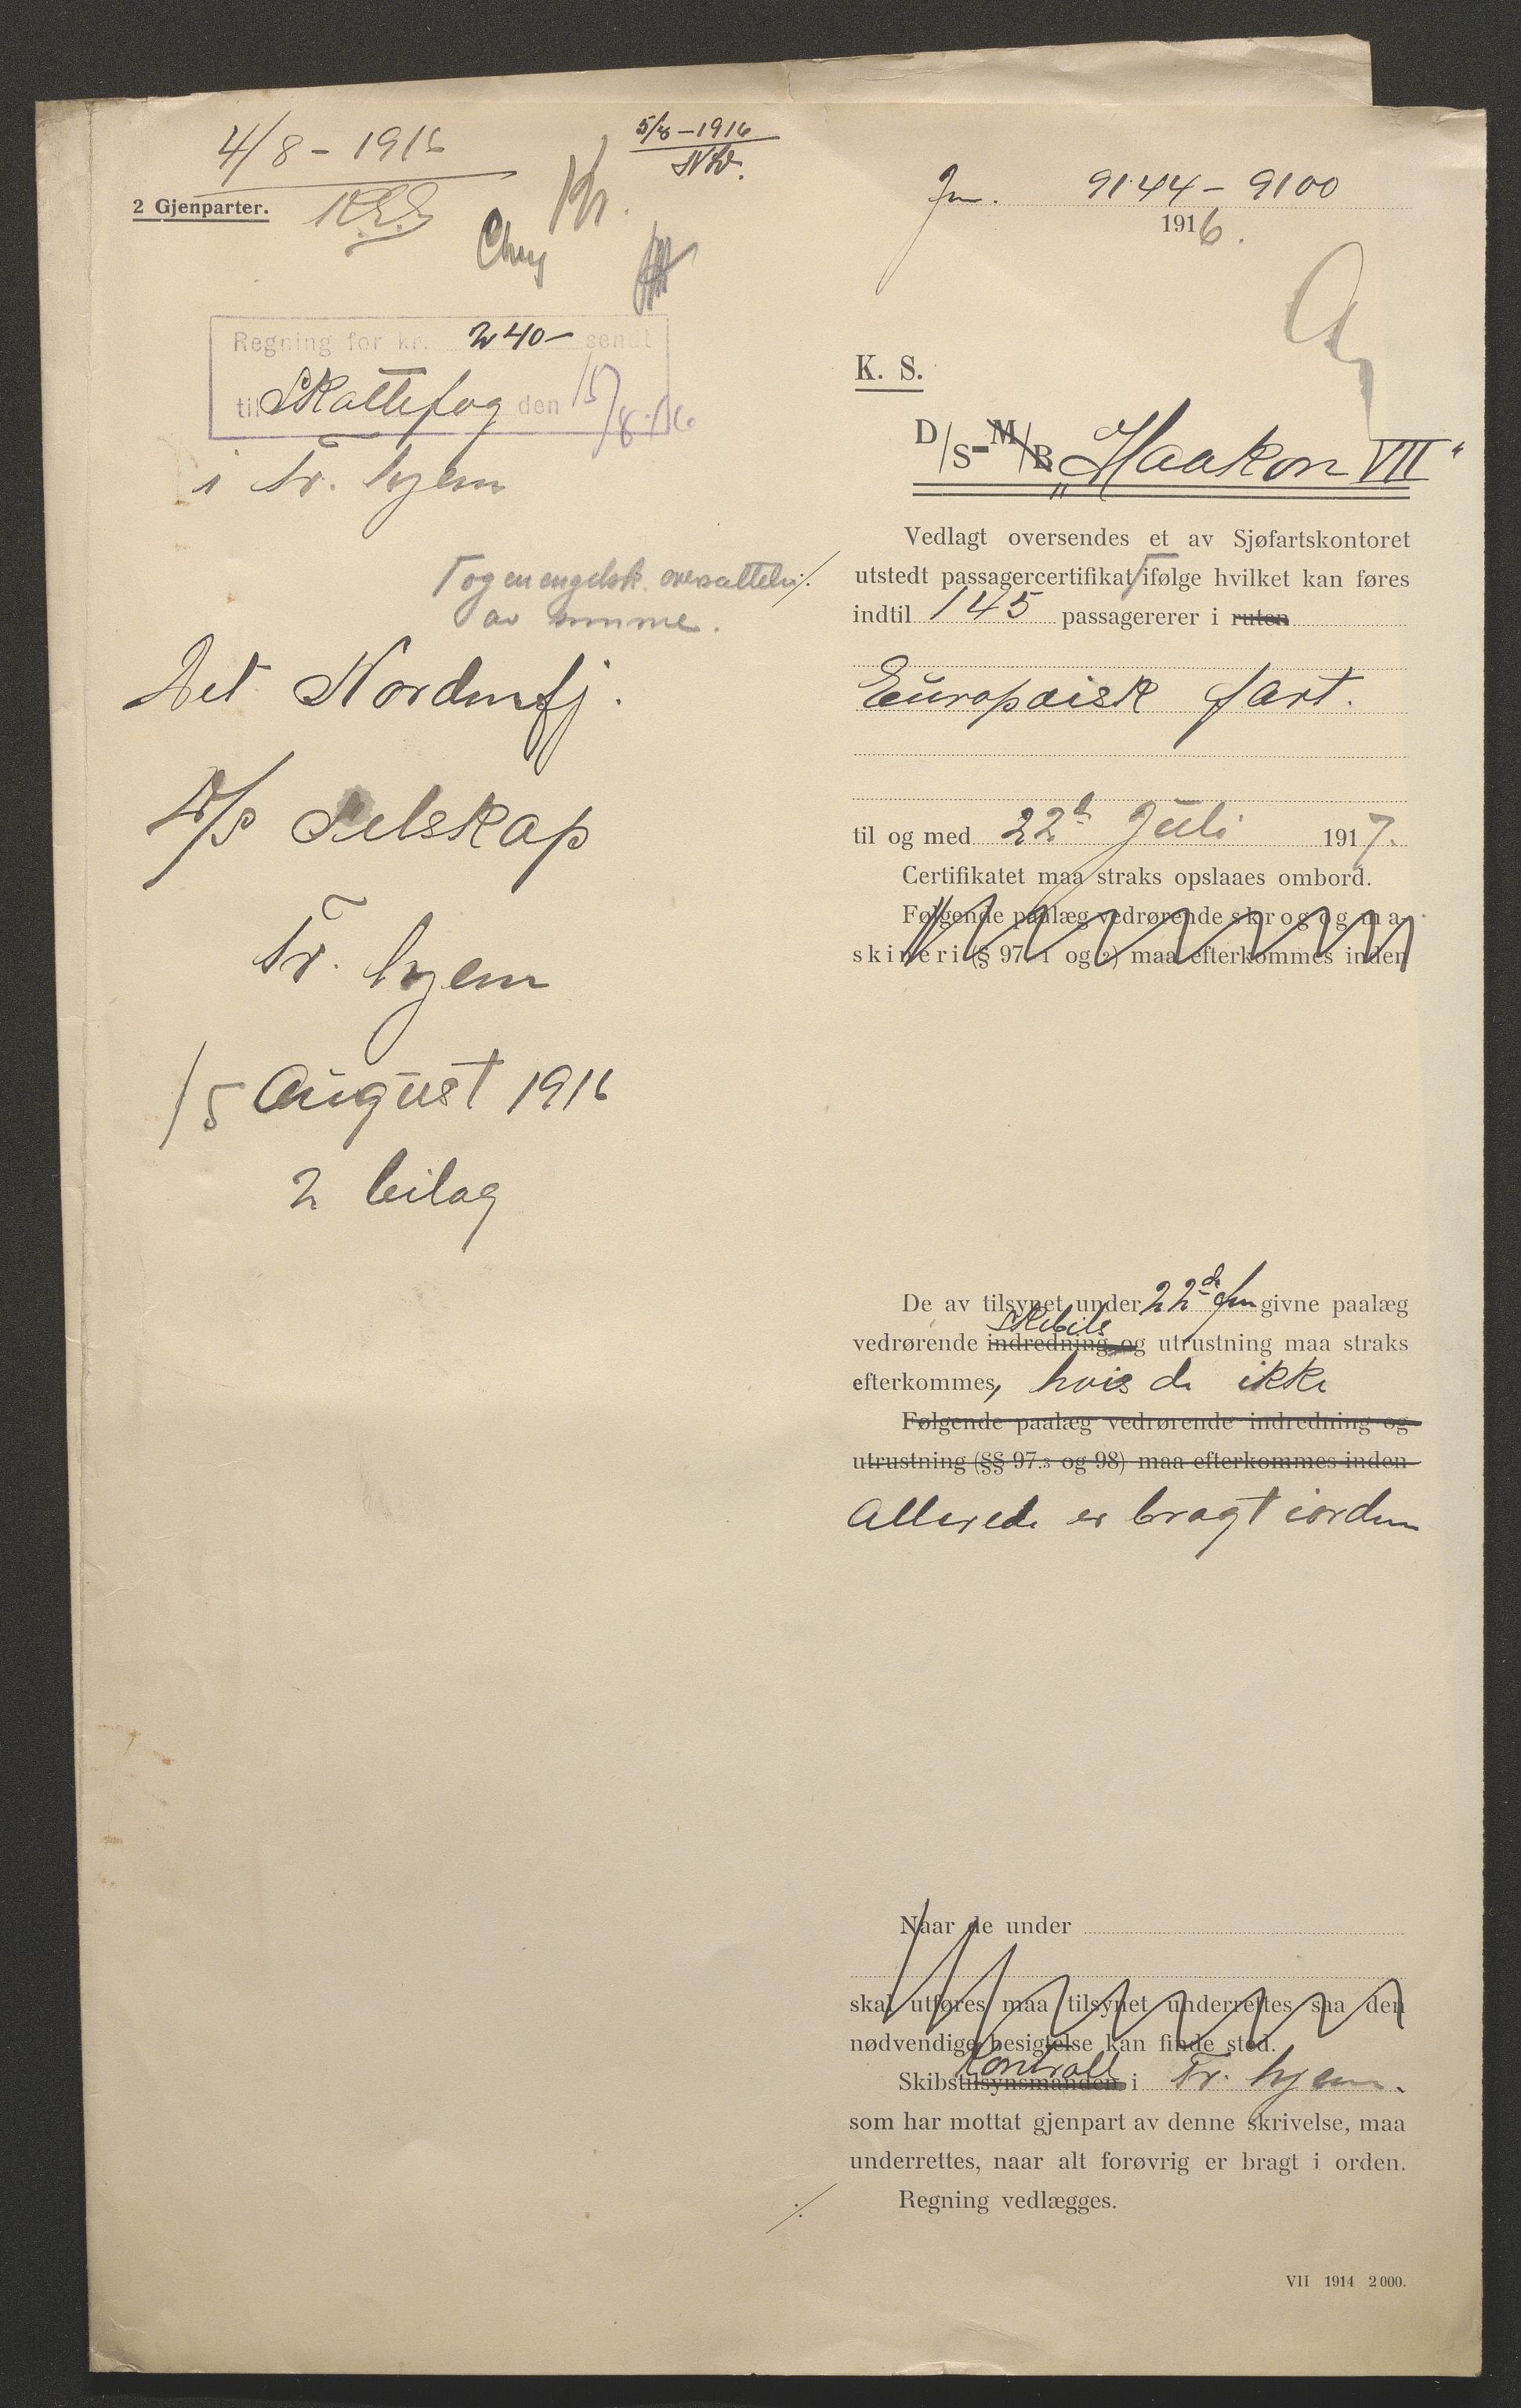 4/8 - 1916
5/8 - 1916
2 Gjenparter.
Jn. 9144 - 9100
1916.
Regning for kr. 240- sendt
til Skattefog den 15/8.16
i Tr. hjem
K. S.
D/S - M/B „Haakon VII“
Vedlagt oversendes et av Sjøfartskontoret
utstedt passagercertifikat ifølge hvilket kan føres
og en engelsk oversættelse
av samme.
indtil 145 passagererer i ruten
Europæisk fart.
til og med 22d Juli 1917.
Certifikatet maa straks opslaaes ombord.
Følgende paalæg vedrørende skrog og ma-
skineri (§ 97. 1 og 2) maa efterkommes inden
Det Nordenfj.
D/S Selskap
Tr. hjem
15 August 1916
2 bilag
De av tilsynet under 22de givne paalæg
vedrørende indredning og utrustning maa straks
efterkommes, hvis de ikke
Følgende paalæg vedrørende indredning og
utrustning (§§ 97.3 og 98) maa efterkommes inden
allerede er bragt i orden
Naar de under
skal utføres maa tilsynet underrettes saa den
nødvendige besigtelse kan finde sted.
Kontroll
Skibstilsynsmanden i Tr. hjem.
som har mottat gjenpart av denne skrivelse, maa
underrettes, naar alt forøvrig er bragt i orden.
Regning vedlægges.
VII 1914 2000.